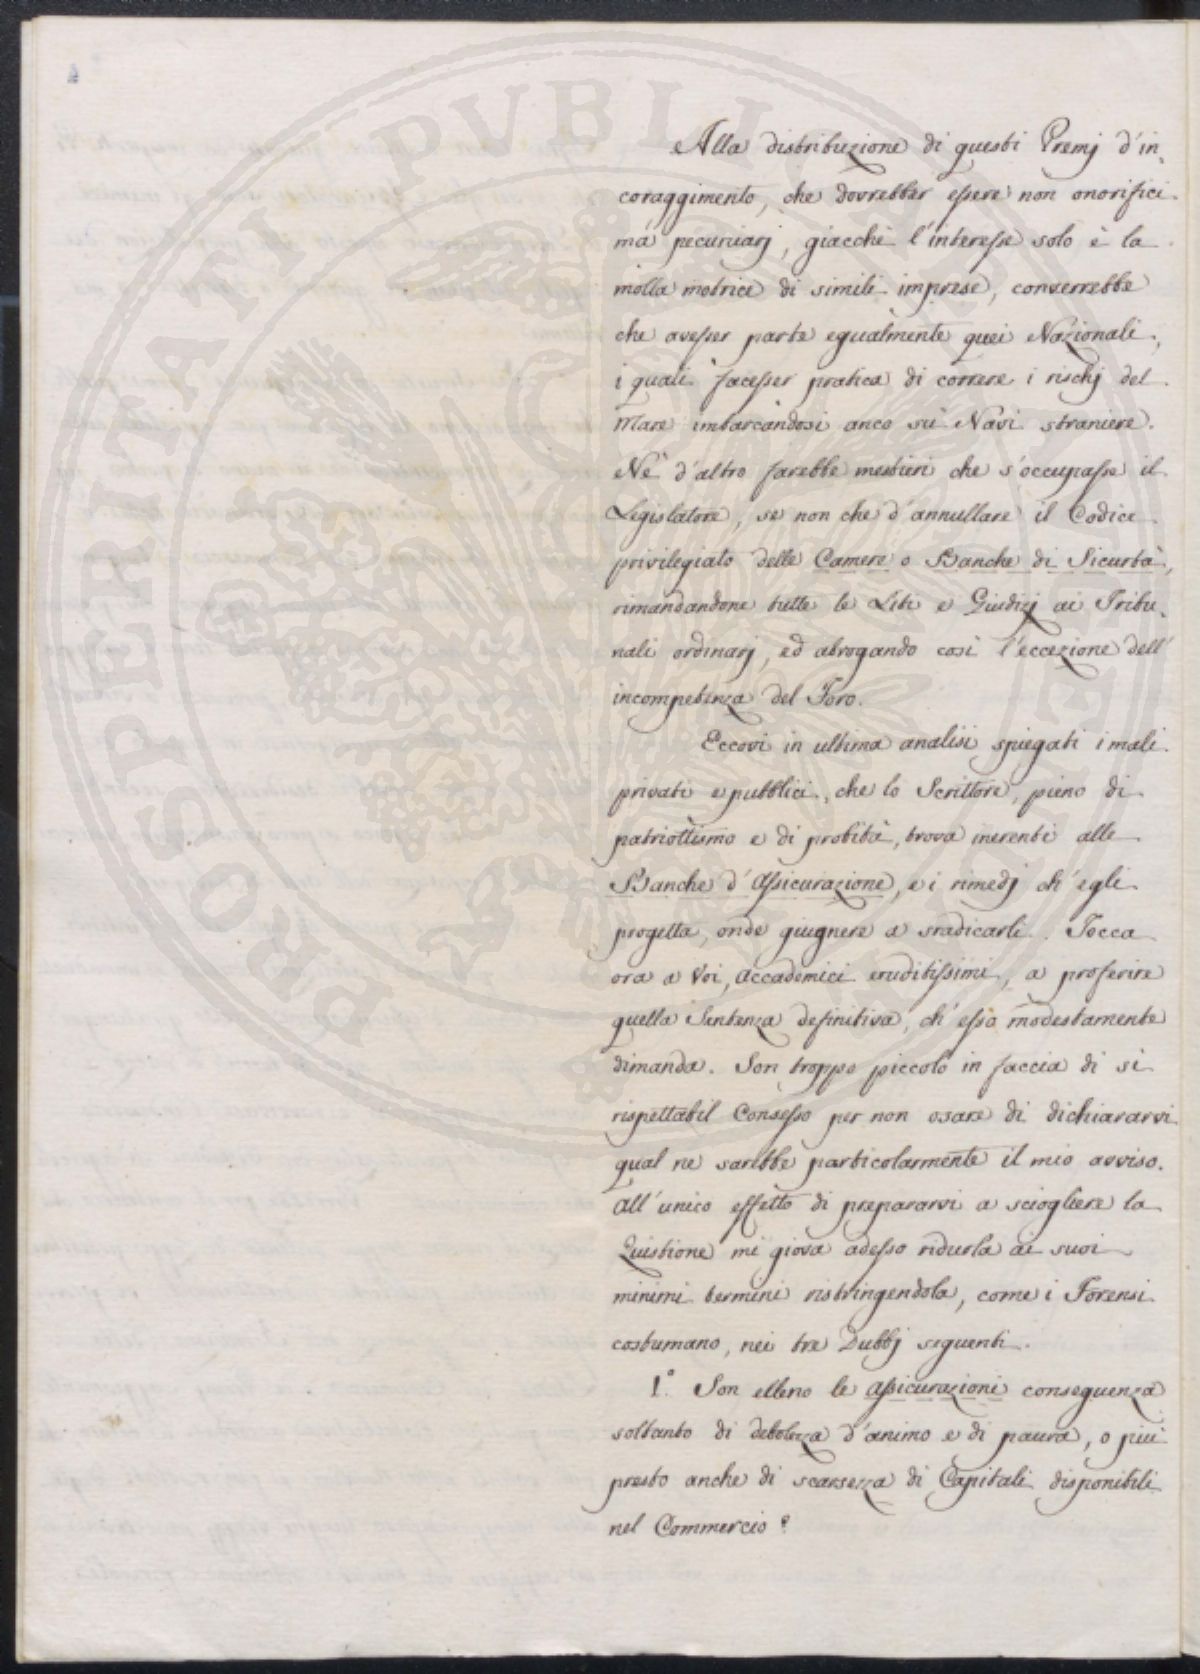 Alla distribuzione di questi Premj d'in,
coraggimento, che dovrebber essere non onorifici
ma pecuniarj, giacchè l'interesse solo è la
molla motrice di simili imprese, converrebbe
che avesser parte egualmente quei Nazionali,
i quali facesser pratica di correre i rischj del
Mare imbarcandosi anco sù Navi straniere.
Nè d'altro farebbe mestieri che s'occupasse il
Legislatore, se non che d'annullare il Codice
privilegiato delle Camere o Banche di Sicurtà,
rimandandone tutte le Liti e Giudizj ai Tribu,
nali ordinarj, ed abrogando così l'eccezione dell'
incompetenza del Foro.
Eccovi in ultima analisi spiegati i mali
privati e pubblici, che lo Scrittore, pieno di
patriottismo e di probità, trova inerenti alle
Banche d'Assicurazione, e i rimedj ch'egli
progetta, onde giugnere a sradicarli. Tocca
ora a Voi, Accademici eruditissimi, a proferire
quella Sentenza definitiva, ch'esso modestamente
dimanda. Son troppo piccolo in faccia di sì
rispettabil Consesso per non osare di dichiararvi
qual ne sarebbe particolarmente il mio avviso.
All'unico effetto di prepararvi a sciogliere la
Quistione mi giova adesso ridurla ai suoi
minimi termini ristringendola, come i Forensi
costumano, nei tre Dubbj seguenti.
1.° Son elleno le Assicurazioni conseguenza
soltanto di debolezza d'animo e di paura, o più
presto anche di scarsezza di Capitali disponibili
nel Commercio?
PROSPERITATI PVBLICAE